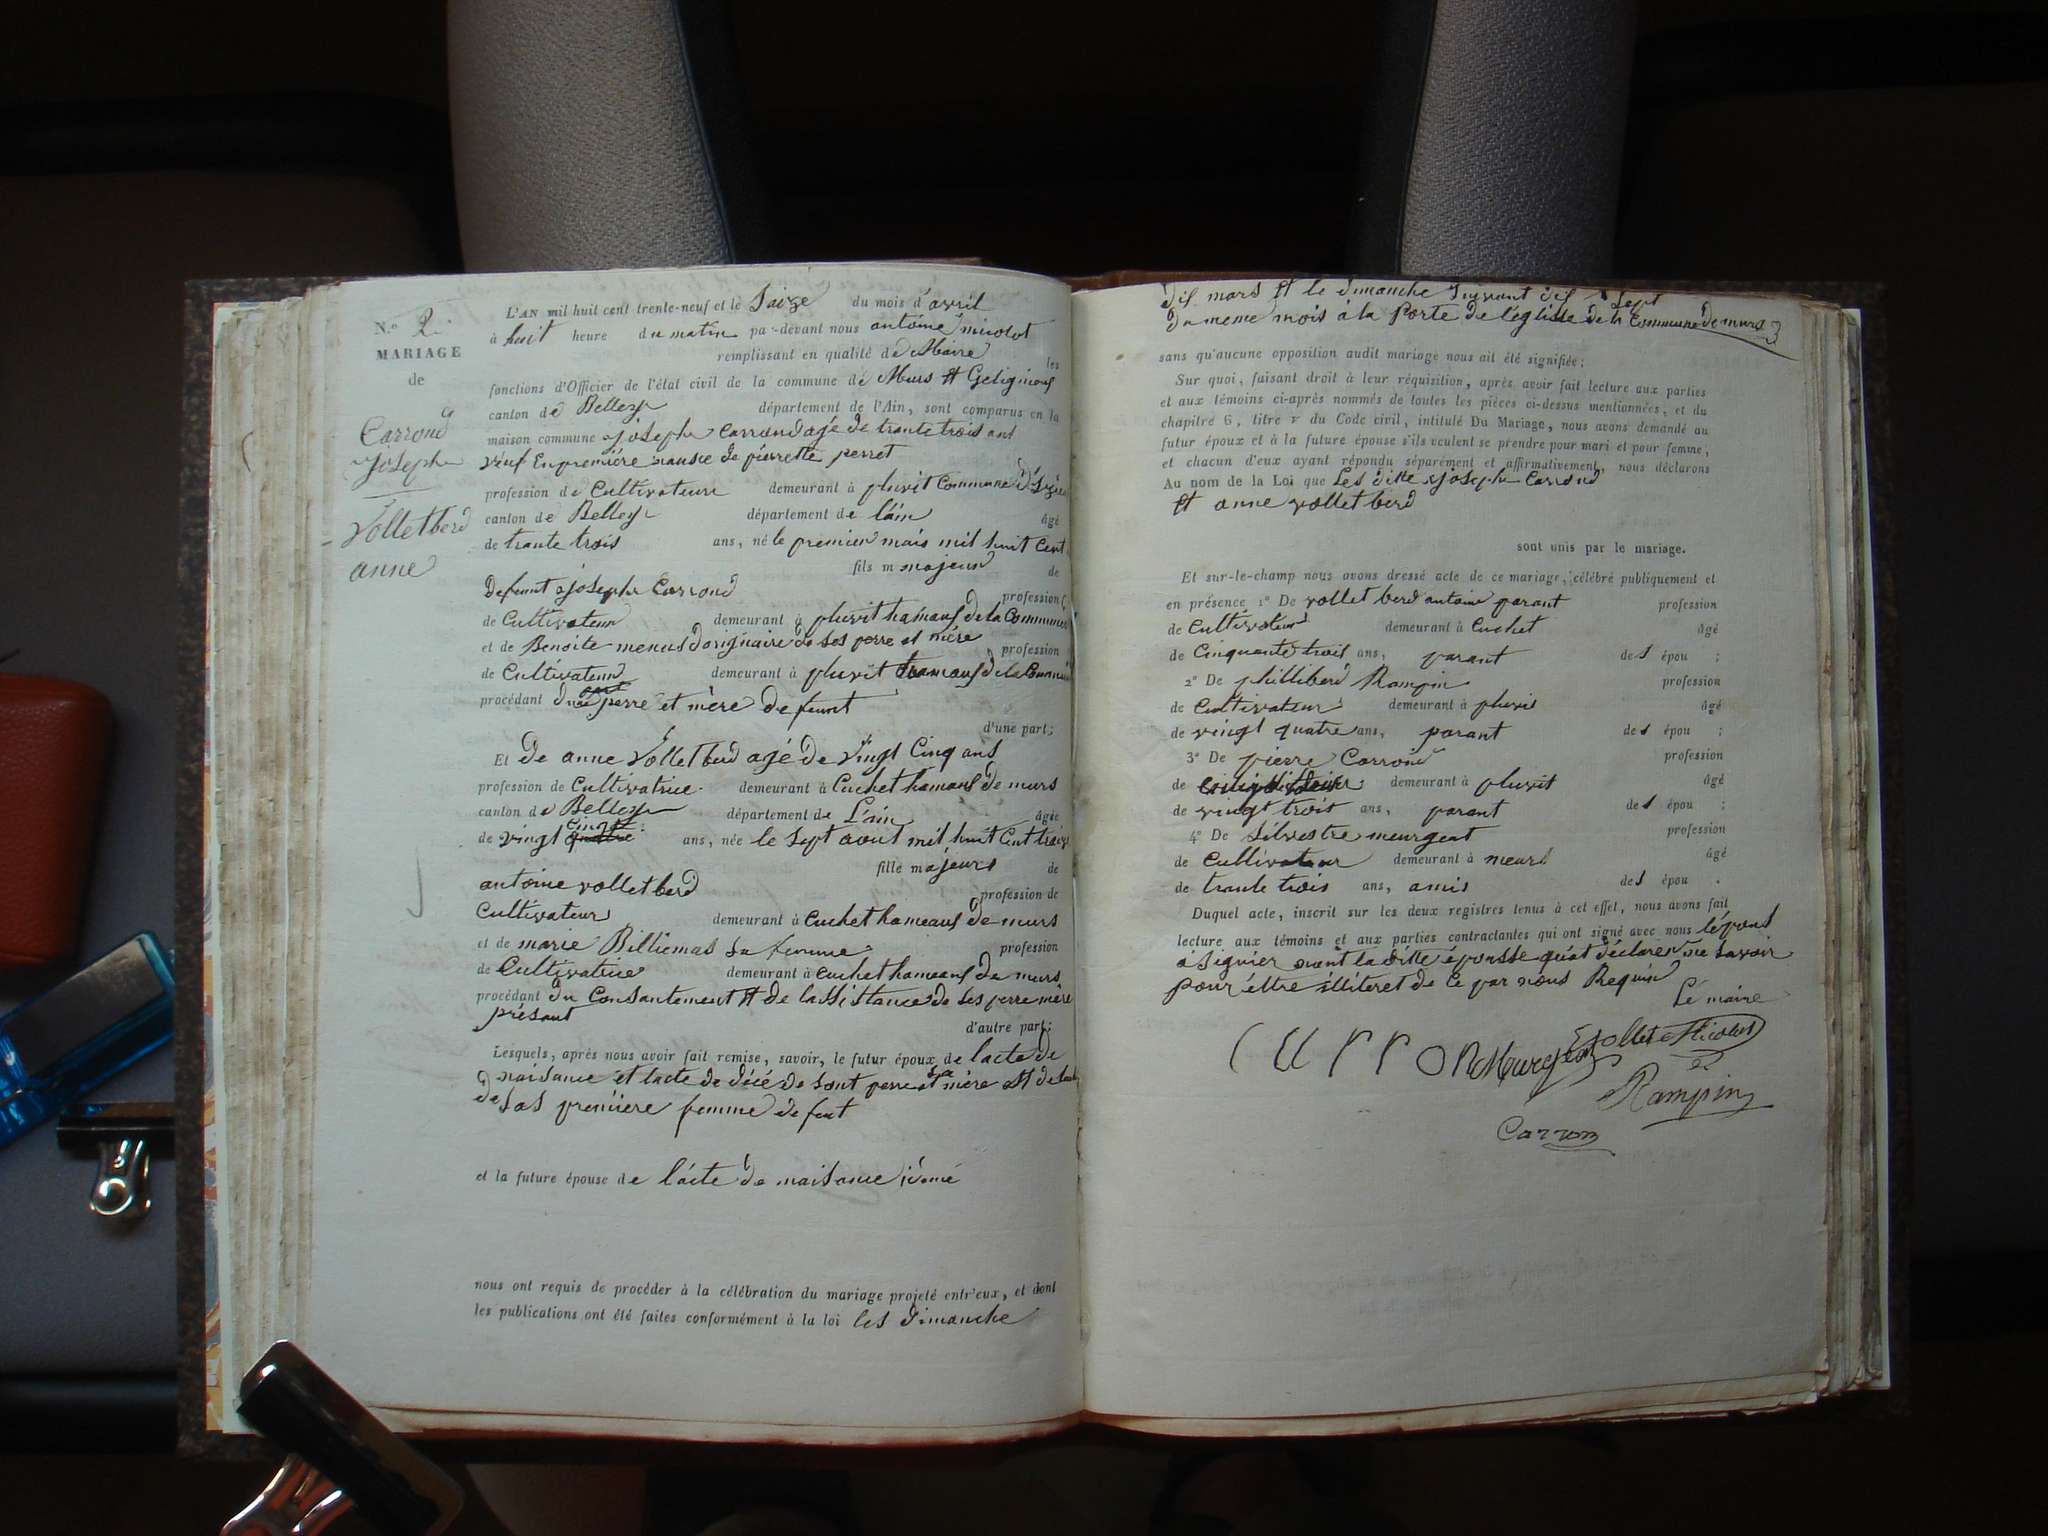 N.o 2.
MARIAGE
de
Carrond
joseph
Volletberd
anne
L'AN mil huit cent trente-neuf et le Saize du mois d'avril
à huit heure du matin par-devant nous antoine
remplissant en qualité de Maire les
fonctions d'Officier de l'état civil de la commune de Murs et Geligneus
canton de Belley département de l'Ain, sont comparus en la
maison commune joseph Carrond agé de trante trois ans
veuf En premiére de pierrette perret
profession de Cultivateur demeurant à pluvit Commune
canton de Belley département de lain âgé
de trante trois ans, né le premier mil huit Cent
fils m majeur de
Defeunt joseph Carrond profession
de Cultivateur demeurant à pluvit hamaus de la Commune
et de Benoite menus dorignaire de ses perre et mére profession
de Cultivateur demeurant à pluvit hamaus de la
procédant perre et mère defeunt
d'une part;
Et De anne Volletberd agé de vingt Cinq ans
profession de Cultivatrice demeurant à Cuchet hamaus de murs
canton de Belley département de L'ain âgée
de vingt Cinq ans, née le sept aout mil huit Cent
fille majeurs de
antoine volletberd profession de
Cultivateur demeurant à Cuchet hameaus de murs
et de marie Billiemas sa femme profession
de Cultivatrice demeurant à Cuchet hameaus de murs
procédant du Consantement et de lassistance de ses perre mére
présant
d'autre part;
Lesquels, après nous avoir fait remise, savoir, le futur époux de lacte de
naisance et lacte de décé de sont perre et sa mère et de
de sas premiere femme defeut
et la future épouse de lacte de naisance
nous ont requis de procéder à la célébration du mariage projeté entr'eux, et dont
les publications ont été faites conformément à la loi les dimanche
dis mars et le dimanche suivant dis sept
du meme mois à la porte de léglisse de la Commune de murs
sans qu'aucune opposition audit mariage nous ait été signifiée;
Sur quoi, faisant droit à leur réquisition, après avoir fait lecture aux parties
et aux témoins ci-après nommés de toutes les pièces ci-dessus mentionnées, et du
chapitre 6, titre v du Code civil, intitulé Du Mariage, nous avons demandé au
futur époux et à la future épouse s'ils veulent se prendre pour mari et pour femme,
et chacun d'eux ayant répondu séparément et affirmativement, nous déclarons
Au nom de la Loi que Les ditte joseph Carrond
et anne volletberd
sont unis par le mariage.
Et sur-le-champ nous avons dressé acte de ce mariage, célébré publiquement et
en présence 1° De vollet berd antoine parant profession
de Cultivateur demeurant à Cuchet âgé
de Cinquante trois ans, parant des épou ;
2° De phillibert Rampin profession
de Cultivateur demeurant à pluvis âgé
de vingt quatre ans, parant des épou ;
3° De pierre Carrond profession
de demeurant à pluvit âgé
de vingt trois ans, parant des épou ;
4° De silvestre meurgeat profession
de Cultivateur demeurant à meurs âgé
de trante trois ans, amis des épou .
Duquel acte, inscrit sur les deux registres tenus à cet effet, nous avons fait
lecture aux témoins et aux parties contractantes qui ont signé avec nous lépous
à signier nont la ditte épousse quat déclarer ne savoir
pour éttre illiteret de ce par nous Requin
Lé maire
Curron Vollet
Rampin
Carron